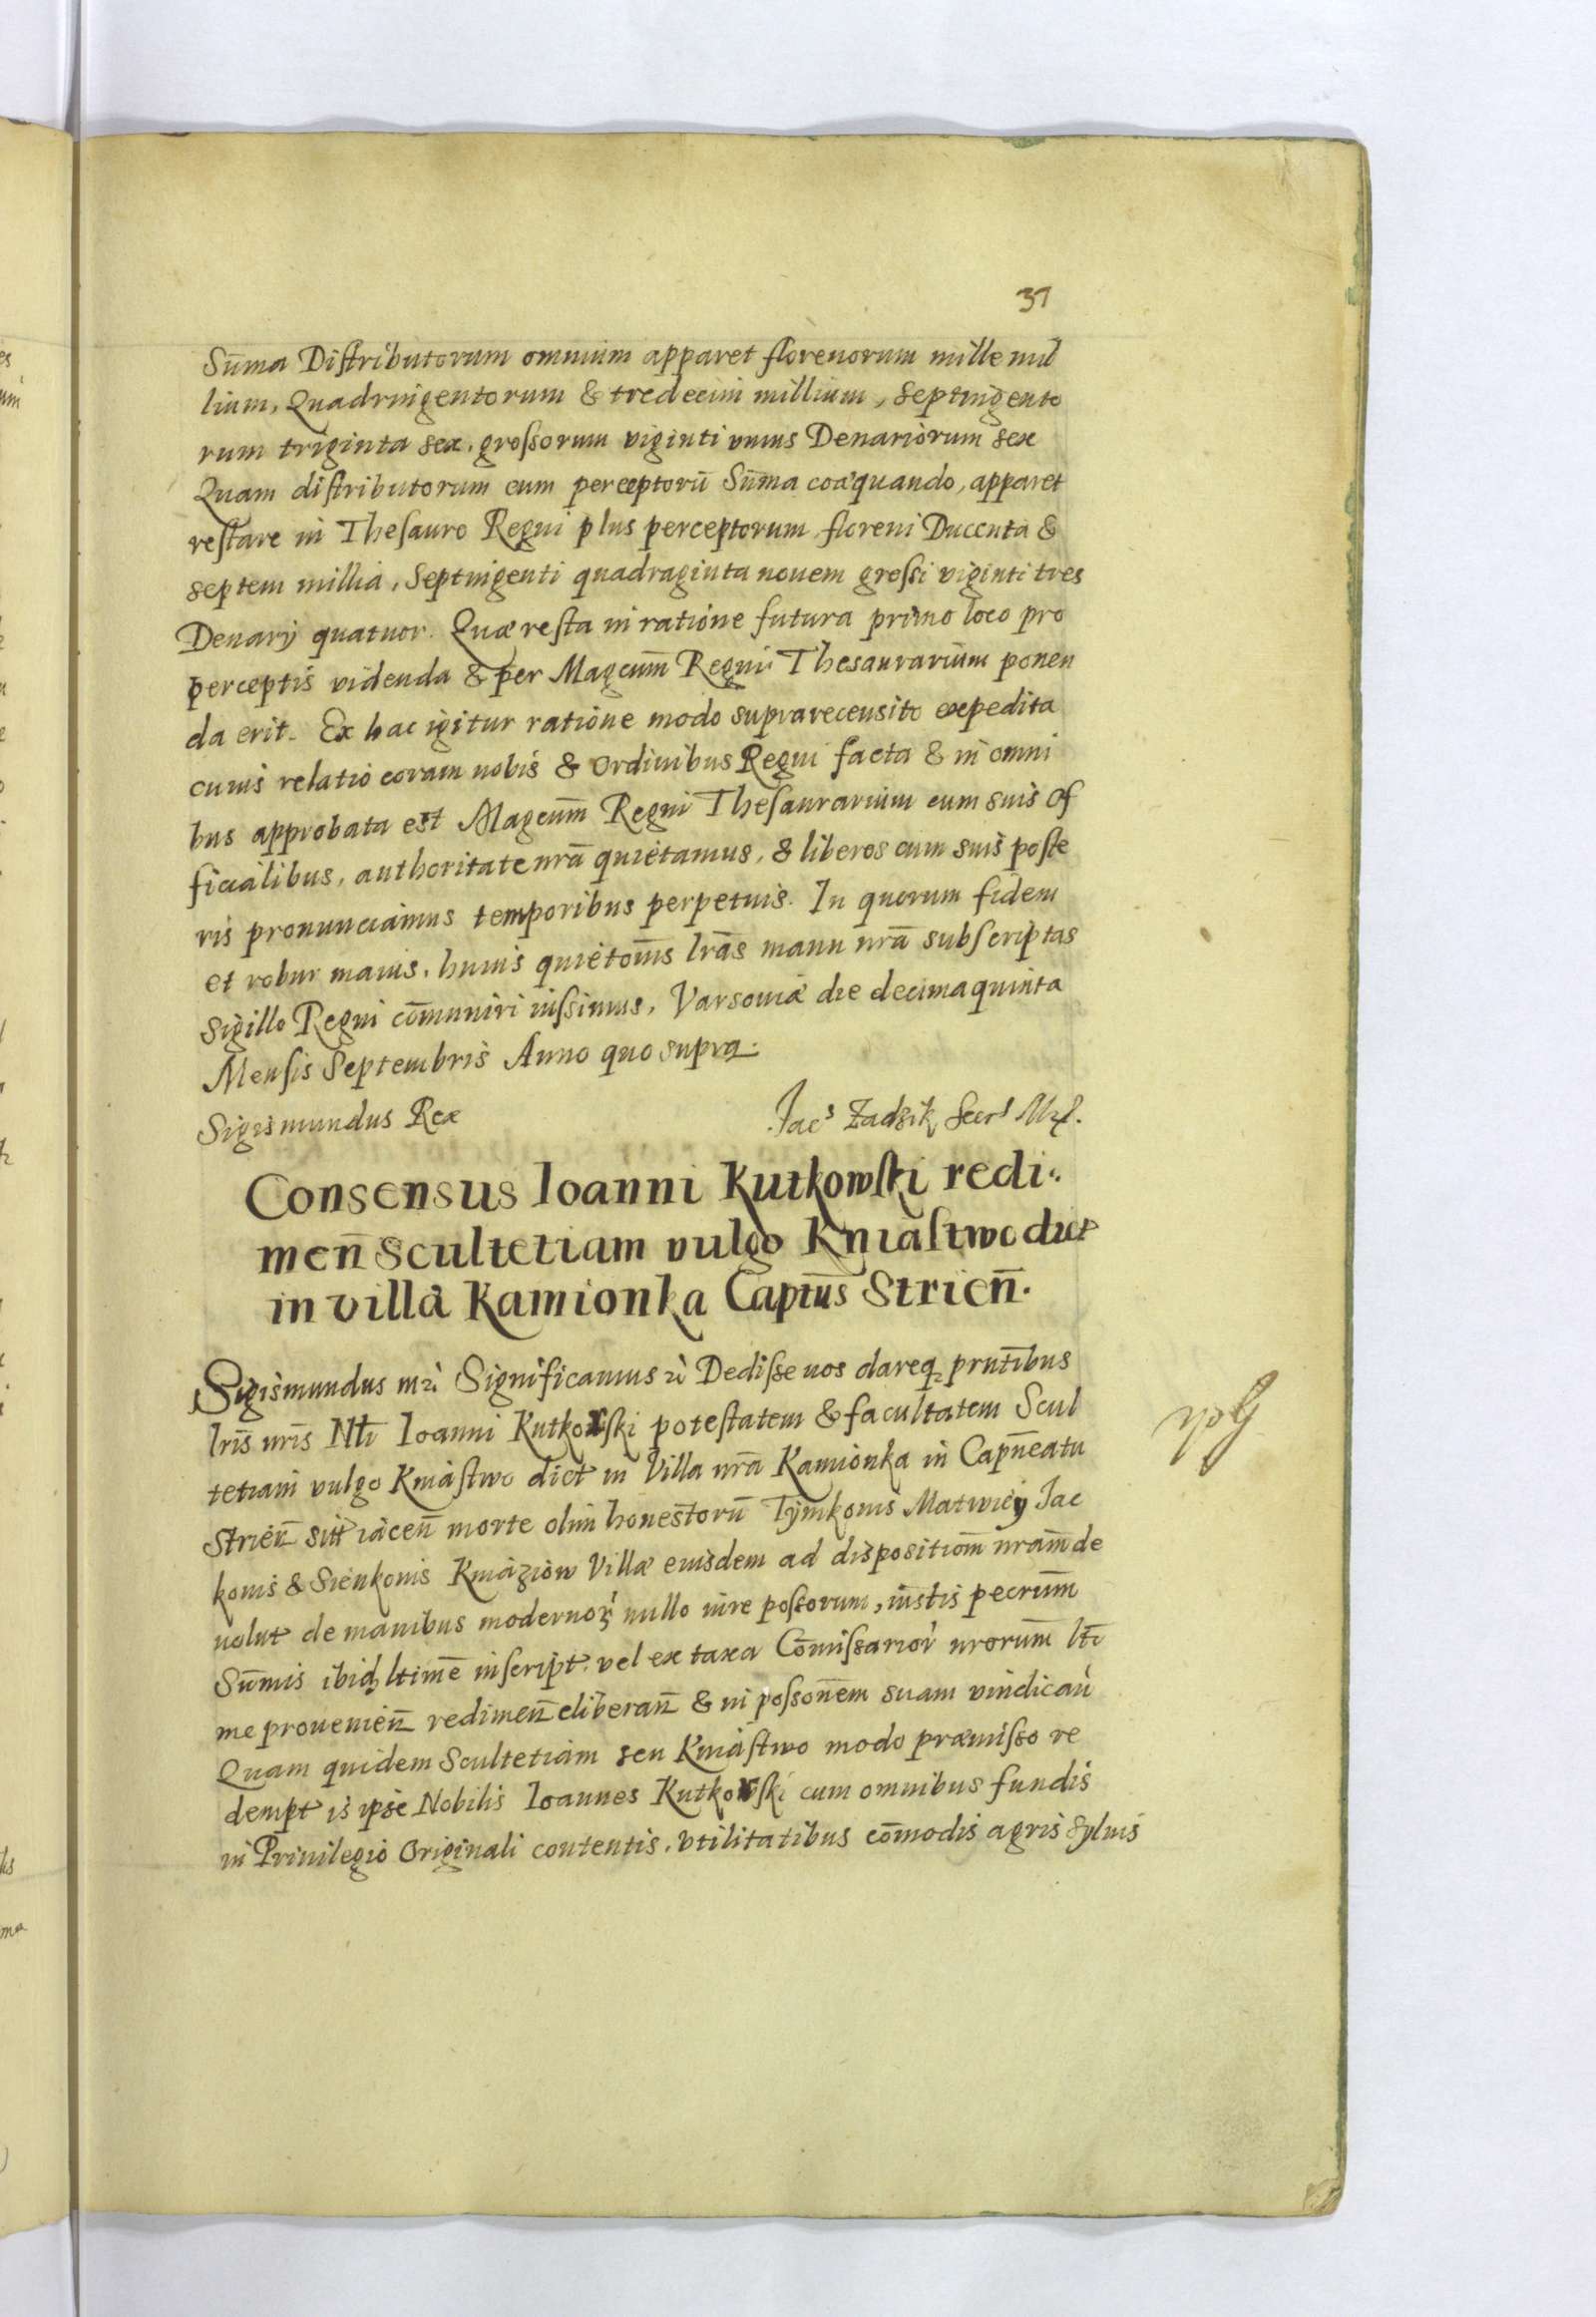 37
Sūma Distributorum omnium apparet florenorum mille mil
lium, Quadringentorum & tredecim millium, septingento
rum triginta sex, grossorum viginti unius Denariorum sex
Quam distributorum cum perceptorū Sūma coæquando, apparet
restare in Thesauro Regni plus perceptorum floreni Ducenta &
septem millia, Septingenti quadraginta novem grossi viginti tres
Denarij quatuor. Quæ resta in ratione futura primo loco pro
perceptis videnda & per Magcum̄ Regni Thesaurarium ponen
da erit. Ex hac igitur ratione modo suprarecensito expedita
cuius relatio coram nobis & Ordinibus Regni facta & in omni
bus approbata est Magcum̄ Regni Thesaurarium cum suis of
ficialibus, authoritate nrā quietamus, & liberos cum suis poste
ris pronunciamus temporibus perpetuis. In quorum fidem
et robur maius, huius quietonis̄ lrās manu nrā subscriptas
sigillo Regni cōmuniri iussimus, Varsoviæ die decima quinta
Mensis Septembris Anno quo supra.
Sigismundus Rex
Jacs Zadzik Secrs
Consensus Ioanni Kutkowski redi
men̄ Scultetiam vulgo Kniastwo dict
in villa Kamionka Captus̄ Strien̄.
Sigismundus Significamus Dedisse nos dareq prntībus
lris̄ nris̄ Nlī Ioanni Kutkowski potestatem & facultatem Scul
tetiam vulgo Kniastwo dict in Villa nrā Kamionka in Capn̄eatu
Strien̄ sitt iacen̄ morte olim honestorū Tymkonis Matwiey Jac
konis & Sienkonis Kniaziow Villæ eiusdem ad dispositiom̄ nram̄ de
uolut de manibus modernor nullo iure possorum, iustis pecrium̄
Sūmis ibid ltimē inscript. vel ex taxa Cōmissarior nrorum̄ ltī
me provenien̄ redimen̄ eliberan̄ & in possonēm suam vindican
Quam quidem Scultetiam seu Kniastwo modo præmisso re
dempt is ipse Nobilis Ioannes Kutkowski cum omnibus fundis
in Privilegio Originali contentis, utilitatibus cōmodis agris sylvis